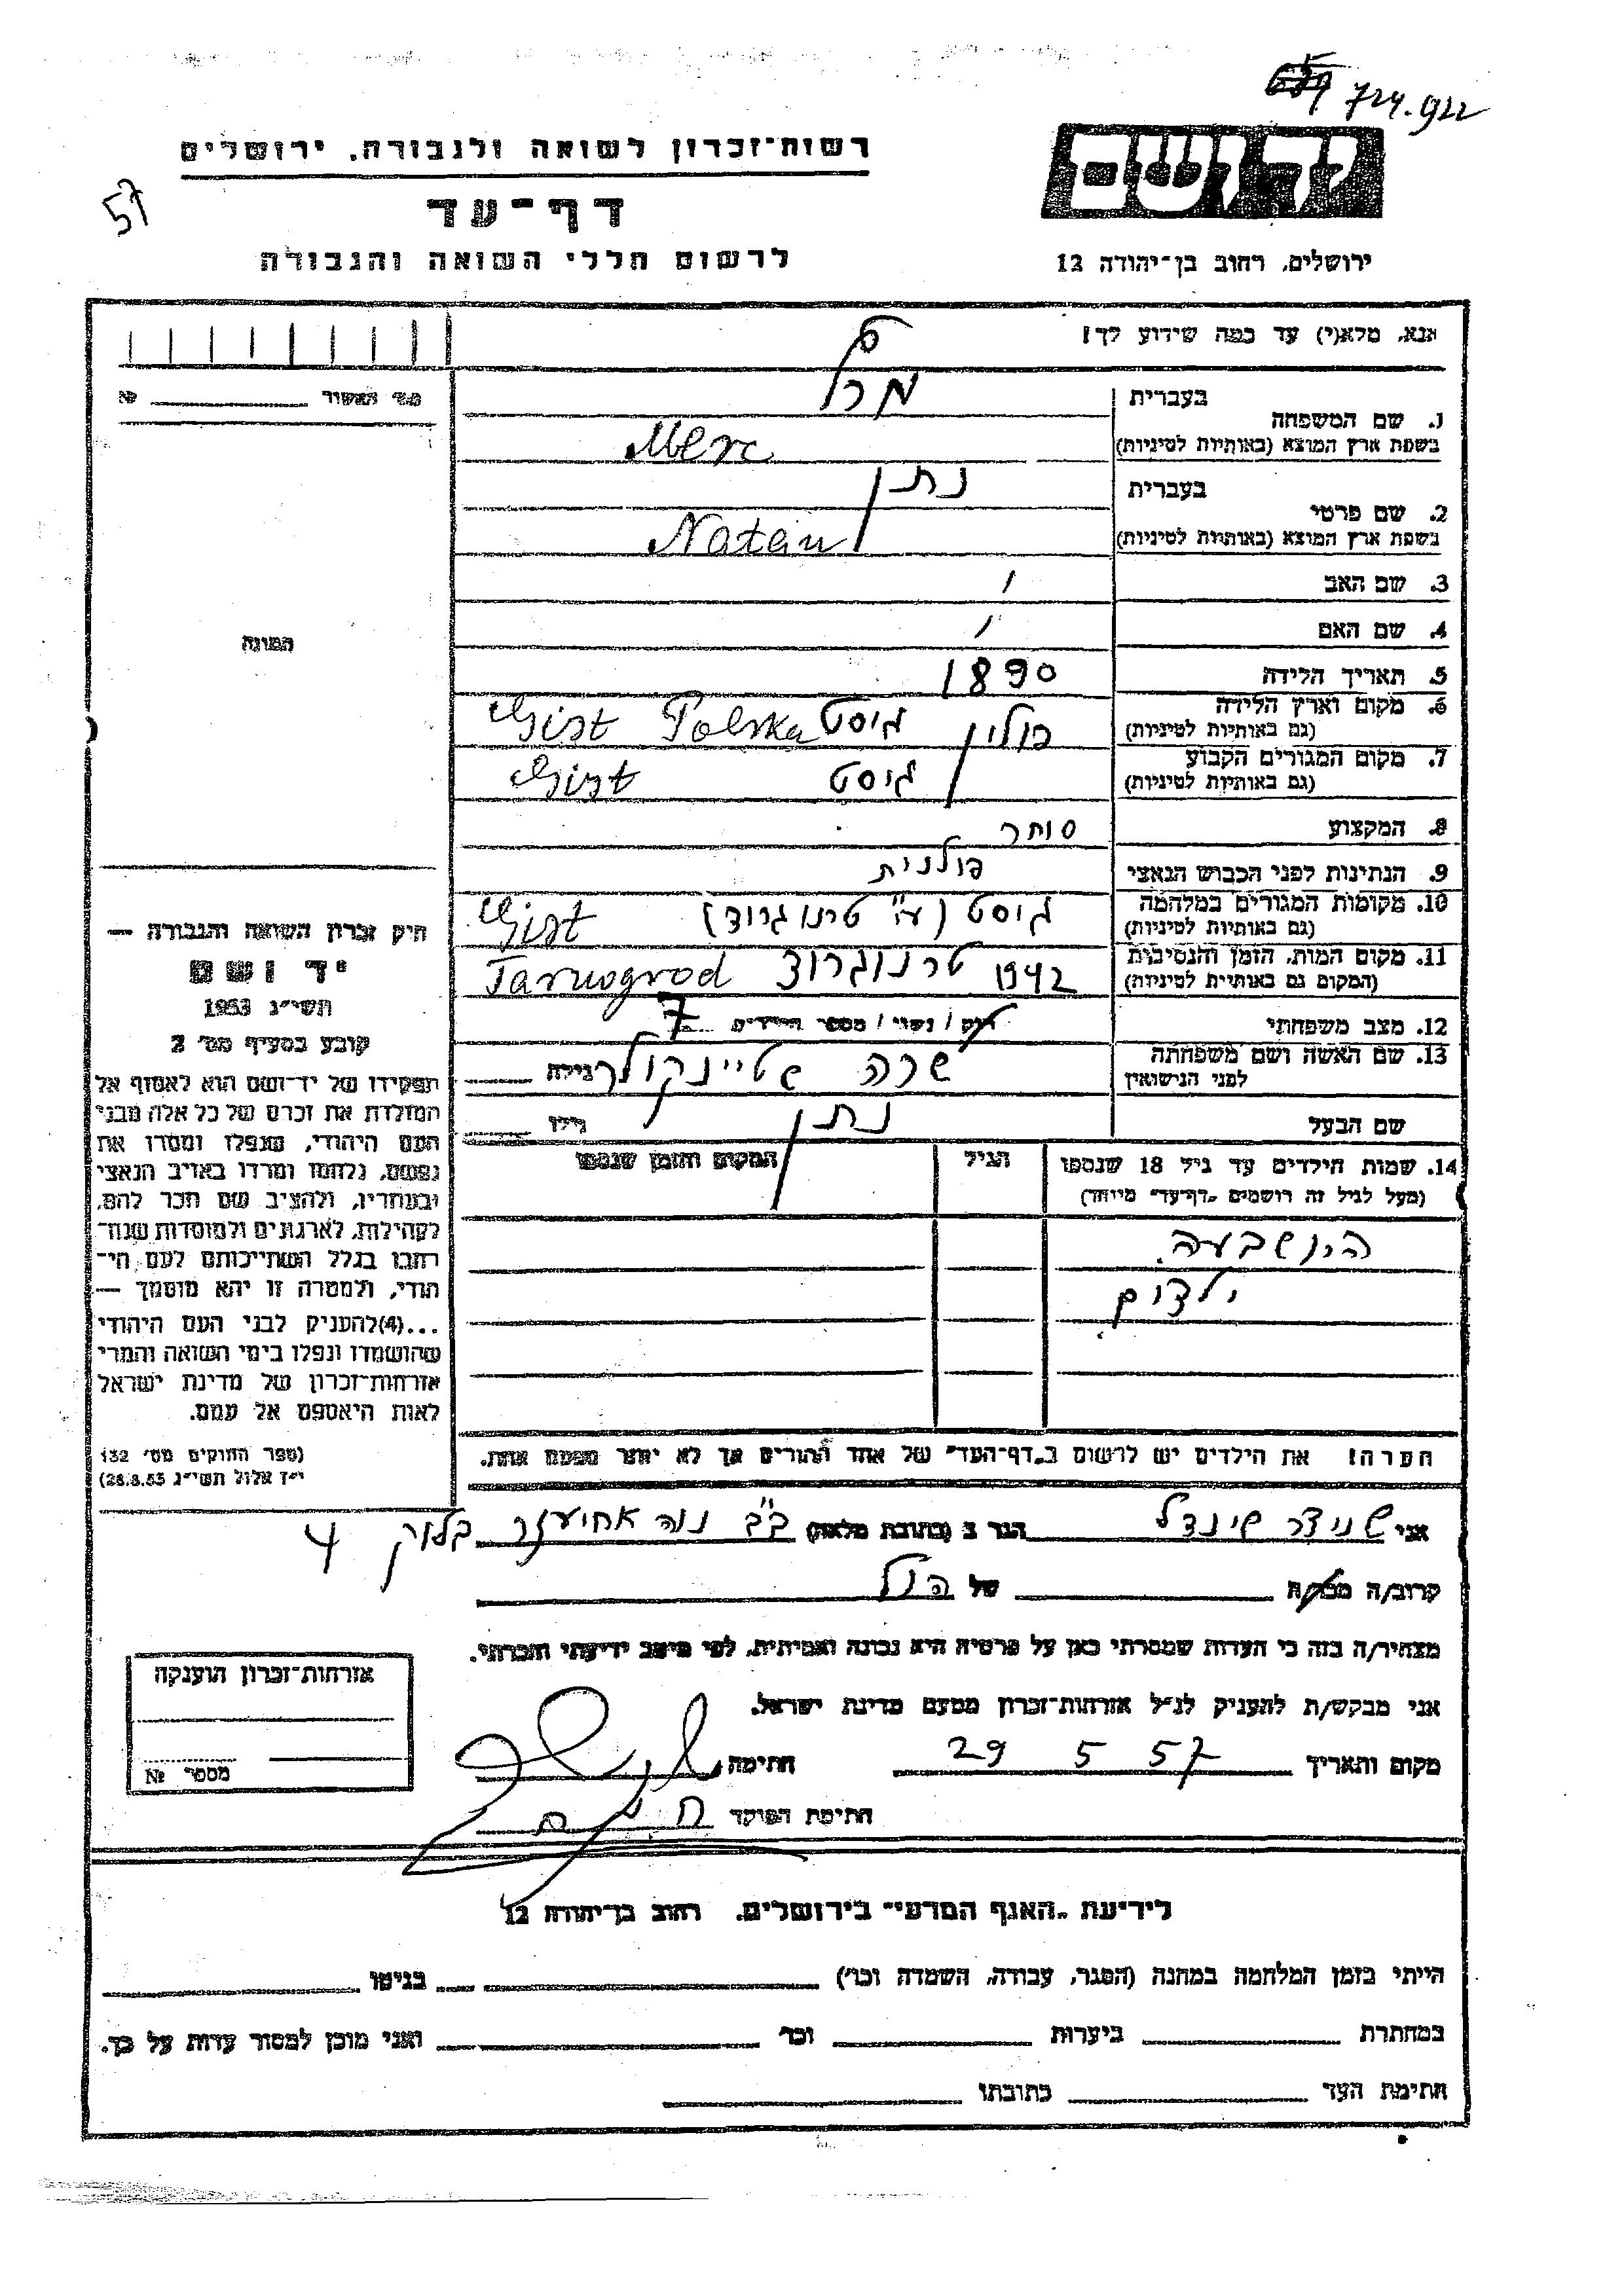 724.922
57
רשות־זכרון לשואה ולגבורה, ירושלים
דף־עד
לרשום חללי השואה והגבורה
יד ושם
ירושלים, רחוב בן־יהודה 12
אנא, מלא(י) עד כמה שידוע לך!
מס' האשור №
1. שם המשפחה בעברית
מרק
בשפת ארץ המוצא (באותיות לטיניות)
Merc
2. שם פרטי בעברית נתן
בשפת ארץ המוצא (באותיות לטיניות) Natan
3. שם האב /
4. שם האם /
תמונה
5. תאריך הלידה 1890
6. מקום וארץ הלידה (גם באותיות לטיניות) פולין גיסט Gist Polska
7. מקום המגורים הקבוע (גם באותיות לטיניות) גיסט Gist
8. המקצוע סוחר
9. הנתינות לפני הכבוש הנאצי פולנית
10. מקומות המגורים במלחמה (גם באותיות לטיניות) גיסט (ע"י טרנוגרוד) Gist
11. מקום המות, הזמן והנסיבות (המקום גם באותיות לטיניות) 1942 טרנוגרוד Tarnogrod
12. מצב משפחתי רוק / נשוי / מספר הילדים 7
13. שם האשה ושם משפחתה לפני הנישואין שרה גילה
שם הבעל נתן גילו
14. שמות הילדים עד גיל 18 שנספו (מעל לגיל זה רושמים „דף־עד" מיוחד) הגיל המקום והזמן שנספו
היו שבעה
ילדים
הערה! את הילדים יש לרשום ב„דף־העד" של אחד ההורים אך לא יותר מפעם אחת.
חיק זכרון השואה והגבורה —
יד ושם
תשי"ג 1953
קובע בסעיף מס' 2
תפקידו של יד־ושם הוא לאסוף אל
המולדת את זכרם של כל אלה מבני
העם היהודי, שנפלו ומסרו את
נפשם, נלחמו ומרדו באויב הנאצי
ובעוזריו, ולהציב שם וזכר להם,
לקהילות, לארגונים ולמוסדות שנח־
רבו בגלל השתייכותם לעם הי־
הודי, ולמטרה זו יהא מוסמך —
...(4)להעניק לבני העם היהודי
שהושמדו ונפלו בימי השואה והמרי
אזרחות־זכרון של מדינת ישראל
לאות היאספם אל עמם.
(ספר החוקים מס' 132
י"ז אלול תשי"ג 28.8.53)
אני שניצר שינדל הגר ב (כתובת מלאה) ב"ב נוה אחיעזר בלוק 4
קרוב/ה מכר/ה של הנ"ל
מצהיר/ה בזה כי העדות שמסרתי כאן על פרטיה היא נכונה ואמיתית, לפי מיטב ידיעתי והכרתי.
אני מבקש/ת להעניק לנ"ל אזרחות־זכרון מטעם מדינת ישראל.
מקום ותאריך 29 5 57 חתימה
חתימת הפוקד
אזרחות־זכרון הוענקה
מספר №
לידיעת „האגף המדעי" בירושלים, רחוב בן־יהודה 12
הייתי בזמן המלחמה במחנה (הסגר, עבודה, השמדה וכו') בגיטו
במחתרת ביערות וכו' ואני מוכן למסור עדות על כך.
חתימת העד כתובתו